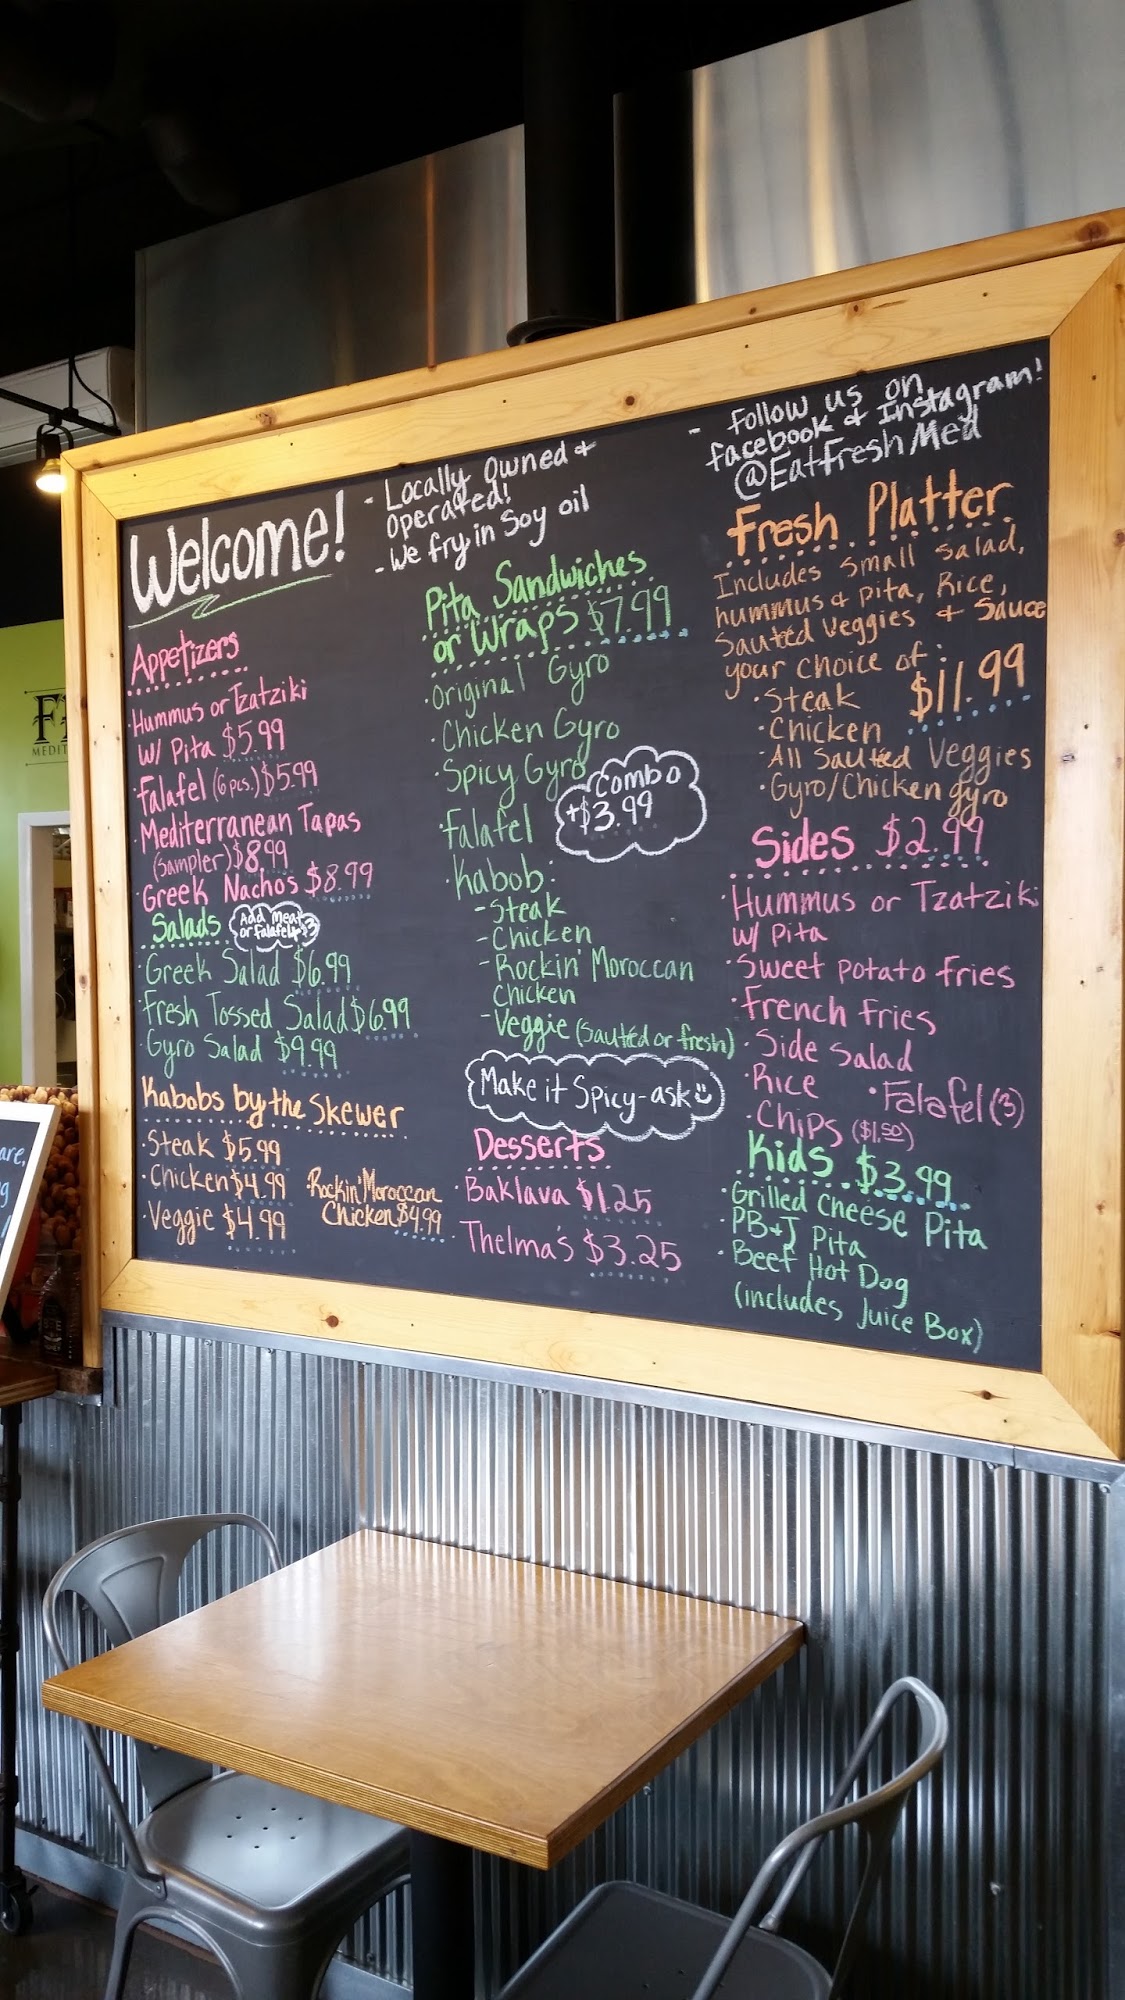 Welcome!
- Locally Owned &
Operated!
- We fry in Soy oil
- Follow us on
facebook & Instagram!
@EatFreshMed
Appetizers
· Hummus or Tzatziki
W/ Pita $5.99
· Falafel (6 pcs.) $5.99
· Mediterranean Tapas
(Sampler) $8.99
· Greek Nachos $8.99
Salads
Add Meat
or falafel +$3
· Greek Salad $6.99
· Fresh Tossed Salad $6.99
· Gyro Salad $9.99
Kabobs by the Skewer
· Steak $5.99
· Chicken $4.99
· Veggie $4.99
· Rockin' Moroccan
Chicken $4.99
Pita Sandwiches
or Wraps $7.99
· Original Gyro
· Chicken Gyro
· Spicy Gyro
· Falafel
· Kabob:
- Steak
- Chicken
- Rockin' Moroccan
Chicken
- Veggie (Sautted or fresh)
Combo
+$3.99
Make it Spicy-ask
Desserts
· Baklava $1.25
· Thelma's $3.25
Fresh Platter
Includes small salad,
hummus & pita, Rice,
Sautted Veggies & Sauce
your choice of:
· Steak
· Chicken
$11.99
· All Sautted Veggies
· Gyro/Chicken gyro
Sides $2.99
· Hummus or Tzatziki
W/ Pita
· Sweet Potato Fries
· French Fries
· Side Salad
· Rice
· Falafel (3)
· Chips ($1.50)
Kids $3.99
· Grilled Cheese Pita
· PB+J Pita
· Beef Hot Dog
(includes Juice Box)